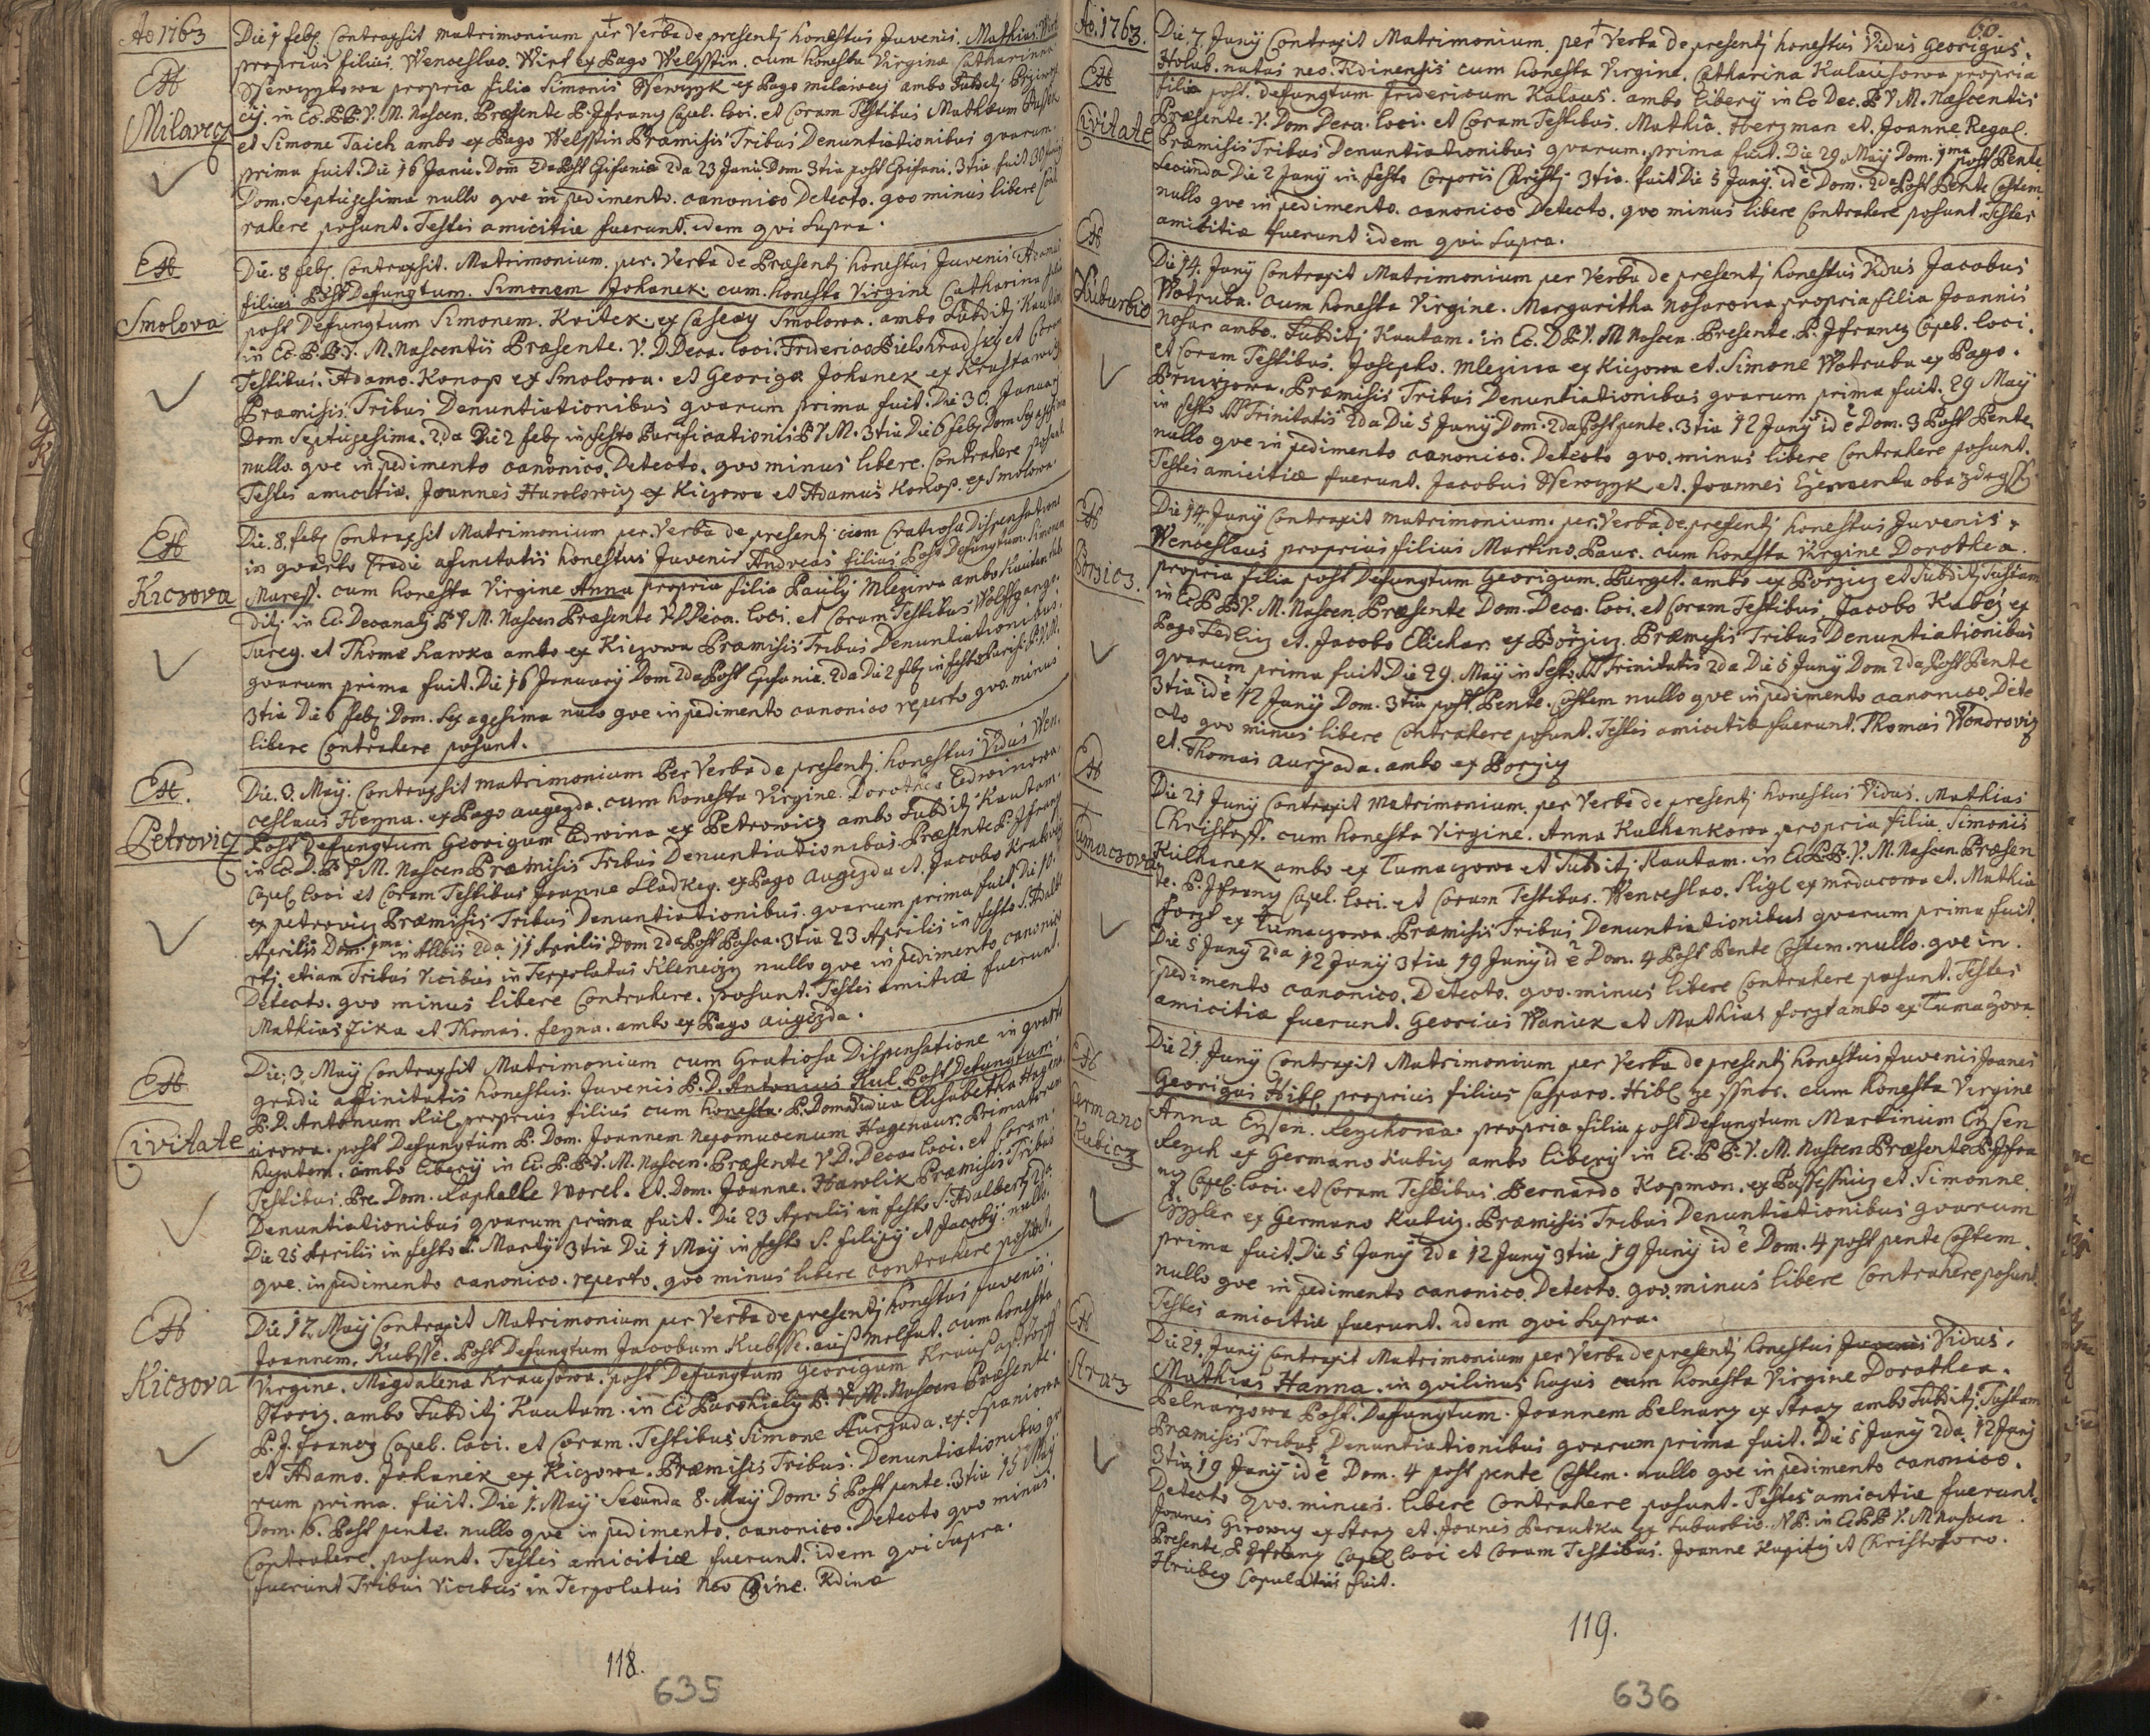 Ao 1763
Die 1 feb. Contraxsit matrimonium per Verba de presentj honestus Juvenis. Mathias Wirt
proprius filius. Wenceslao. Wirt ex Pago Welsstin. cum honesta Virgine Catharinna
propria filia Simonis ex Pago milawecz ambo Subditj
Milavecz
in Ec. P.B.V.M. Nascen. Præsente P. Jfrancz Capel. loci. et Coram Testibus Mathæum
et Simone Taich ambo ex Pago Welsstin Præmisis Tribus Denuntiationibus qvarum.
prima fuit. Die 16 Janu. Dom 2da Post Epifania 2da 23 Janu. Dom 3tia post Epifani. 3tia fuit 30
Dom. Septuagesima nullo qve in pedimento. canonico Detecto. qvo minus libere Cont
rahere posunt. Testes amicitiæ fuerunt. idem qvi Supra.
Smolova
Die. 8 feb. Contraxsit. Matrimonium. per. Verba de Præsentj honestus Juvenis Adamus
filius Post Defungtum. Simonem Johanek. cum. honesta Virgine Catharina filia
post Defungtum Simonem. Kvitek. ex Smolowa. ambo Subditj Kautam
in Ec. P.B.V. M. Nascentis Præsente. V. D. Deca. loci. Friderico Bielohradsky et Coram
Testibus. Adamo. Konop ex Smolowa. et Georigæ Johanek ex
Præmisis. Tribus Denuntiationibus qvarum prima fuit. Die 30. Januarj
Dom Septuagesima. 2da Die 2 feb. in festo Purificationis B V M. 3tia Die 6 feb. Dom Sexagesima
nullo. qve in pedimento canonico. Detecto. qvo minus libere. Contrahere posunt
Testes amicitiæ. Joannes ex Kiczowa et Adamus Konop. ex Smolowa
Kiczova
Die. 8. feb. Contraxsit Matrimonium per. Verba de presentj cum Gratiosa Dispensatione
in qvarto Gradu afinitatis honestus Juvenis Andreas filius Post Defungtum. Simonem
Maress. cum honesta Virgine Anna propria filia Paulÿ Mleziwa ambo Kautam Sub
ditj in Ec. Decanalj B V M. Nascen Præsente V D Deca. loci. et Coram Testibus Wolfgange
Turcy. et Thomæ hawka ambo ex Kiczowa Præmisis Tribus Denuntiationibus.
qvarum prima fuit. Die 16 Januarÿ Dom 2da Post Epifania. 2da Die 2 feb. in festo Purifi. B.V.M.
3tia Die 6 feb. Dom. Sexagesima nulo qve in pedimento canonico reperto qvo. minus
libere Contrahere posunt.
Petrovicz
Die. 3. Maÿ. Contraxsit matrimonium Per Verba de presentj. honestus Vidus Wen.
ceslaus Heyna. ex Pago augezda. cum honesta Virgine. Dorothea Ledwinowa
Post Defungtum Georigum Ledwina ex Petrowicz ambo Subditj Kautam.
in Ec. D. B V M. Nascen Præmisis Tribus Denuntiationibus. Præsente P. Jfrancz
Capel. loci et Coram Testibus Joanne Sladkey. ex Pago augezda et Jacobo
ex petrovicz Præmisis Tribus Denuntiationibus. qvarum prima fuit Die 10.
Aprilis Dom. 1ma in Albis 2da 17 Aprilis Dom 2da Post Pasca. 3tia 23 Aprilis in festo S. Adalbe
rtj. etiam Tribus Vicibus in Terpolatus Kleneczy nullo qve in pedimento canonico
Detecto. qvo minus libere Contrahere. posunt. Testes amicitiæ fuerunt.
Mathias Zika et Thomas. feyna. ambo ex Pago augezda.
Civitate
Die. 3. Maÿ Contraxsit Matrimonium cum Gratiosa Dispensatione in qvarto
gradu affinitatis honestus. Juvenis P. D. Antonius Kul. Post Defungtum.
P. D. Antonum Kul. proprius filius cum honesta. P. Dom. Vidua Elisabetha Hagena
urowa. post Defungtum P. Dom. Joannem Nepomucenum Hagenaur. Primatorem
hujatem. ambo liberÿ in Ec. P. B V. M. Nascen. Præsente V. D. Deca loci. et Coram.
Testibus. Pre. Dom. Raphaelle Worel. et. Dom. Joanne. Hawlik Præmisis Tribus
Denuntiationibus qvarum prima fuit. Die 23 Aprilis in festo S. Adalbertj 2da
Die 25 Aprilis in festo S. Martÿ 3tia Die 1 Maÿ in festo S. filipÿ et Jacobÿ. nullo
qve. in pedimento canonico. reperto. qvo minus libere contrahere posunt.
Kiczova
Die 17. Maÿ Contraxit Matrimonium per Verba de presentj honestus Juvenis.
Joannem. Kubsse. Post Defungtum Jacobum Kubsse. aus melhut. cum honesta
Virgine. Magdalena Krausowa. post Defungtum Georigum Kraus
Storiz. ambo Subditj Kautam. in Ec Parochialÿ B. V. M. Nascen Præsente.
P. J. francz Capel. loci. et Coram. Testibus Simone Aurzada. ex. Spaniowa
et Adamo. Johanek ex Kiczowa. Præmisis Tribus. Denuntiationibus qva
rum prima. fuit. Die 1. Maÿ Secunda 8. Maÿ Dom. 5 Post pente. 3tia 15 Maÿ
Dom. 6. Post pente. nullo qve in pedimento. canonico. Detecto qvo minus
Contrahere. posunt. Testes amicitiæ fuerunt. idem qvi Supra.
fuerunt Tribus Vicibus in Terpolatus Neo Kdinæ
118.
635
Ao. 1763.
60.
Civitate
Die. 7. Junÿ Contraxit Matrimonium. per Verba de presentj honestus Vidus Georigus.
Holub. natus neo. Kdinensis cum honesta Virgine. Catharina Kalausowa propria
filia post. defungtum fridericum Kalaus. ambo liberÿ in Ec Dec. B V M. Nascentis
Præsente. V. Dom Deca. loci. et Coram Testibus. Mathia. oberzman et. Joanne Regal.
Præmisis Tribus Denuntiationibus qvarum. prima fuit. Die 29. Maÿ Dom. 1ma post Pente
Secunda Die 2 Junÿ in festo Corporis Christj 3tia. fuit Die 5 Junÿ. id ē Dom. 2da Post Pente Costem
nullo qve in pedimento. canonico Detecto. qvo minus libere Contrahere posunt. Testes
amicitiæ fuerunt idem qvi Supra.
Suburbio
Die 14. Junÿ Contraxit Matrimonium per Verba de presentj honestus Vidus Jacobus
Wotruba. cum honesta Virgine. Margaritha Nosarowa propria filia Joannis
Nosar ambo. Subditj Kautam. in Ec. D B. V. M Nascen. Presente. P. Jfrancz Capel. loci.
et Coram Testibus. Josepho. Mleziwa ex Kiczowa et. Simone Wotruba ex Pago.
Præmisis Tribus Denuntiationibus qvarum prima fuit. 29 Maÿ
in festo SS Trinitatis 2da Die 5 Junÿ Dom. 2da Post pente. 3tia 12 Junÿ id ē Dom. 3 Post Pente.
nullo qve in pedimento canonico. Detecto qvo. minus libere Contrahere posunt.
Testes amicitiæ fuerunt. Jacobus et. Joannes
Porzicz.
Die 14. Junÿ Contraxit matrimonium. per. Verba de presentj honestus Juvenis.
Wenceslaus proprius filius Martino. Paur. cum honesta Virgine Dorothea.
propria filia post Defungtum Georigum. Purget. ambo ex Porzicz et Subditj
in Ec P B V. M. Nascen. Præsente Dom. Deca. loci. et Coram Testibus Jacobo ex
Pago Sedlicz et. Jacobo ex Porzicz. Præmisis Tribus Denuntiationibus
qvarum prima fuit Die 29. Maÿ in festo SS Trinitatis 2da Die 5 Junÿ Dom 2da Post Pente
3tia id ē 12 Junÿ Dom. 3tia post Pente. Costem nullo qve in pedimento canonico. Dete
cto qvo minus libere Contrahere posunt. Testes amicitiæ fuerunt. Thomas Wondrovicz
et. Thomas aurzada. ambo ex Porzicz
Tumaczova
Die 21 Junÿ Contraxit matrimonium. per Verba de presentj honestus Vidus. Mathias
Christoff. cum honesta Virgine. Anna Kulhankowa propria filia Simonis
Kulhanek ambo ex Tumaczowa et Subditj Kautam. in Ec P.B. V. M. Nascen. Præsen
te. P. Jfrancz Capel. loci. et Coram Testibus. Wenceslao. Sligl ex mrdacowa et. Mathia
forzt ex Tumaczowa. Præmisis Tribus Denuntiationibus qvarum prima fuit.
Die 5 Junÿ 2da 12 Junÿ 3tia 19 Junÿ id ē Dom. 4 Post Pente Costem. nullo. qve in.
pedimento canonico. Detecto. qvo. minus libere Contrahere posunt. Testes
amicitiæ fuerunt. Georius Waniek et Mathias forzt ambo ex Tumaczova
Germano Kubicz
Die 21. Junÿ Contraxit Matrimonium per Verba de presentj honestus Juvenis Joanes
Georigus Hibl. proprius filius Casparo. Hibl. cum honesta Virgine
Anna Eysen. propria filia post Defungtum Martinum Eysen
ex Germano Kubicz ambo liberÿ in Ec. P B. V. M. Nascen Præsente P. Jfra
ncz Capel. loci. et Coram Testibus Bernardo Kopmon. ex et. Simonne.
ex Germano Kubicz. Præmisis Tribus Denuntiationibus qvarum
prima fuit Die 5 Junÿ 2da 12 Junÿ 3tia 19 Junÿ id ē Dom. 4 post pente Costem
nullo qve in pedimento canonico. Detecto. qvo. minus libere Contrahere posunt
Testes amicitiæ fuerunt. idem qvi Supra.
Straz
Die 21. Junÿ Contraxit Matrimonium per Verba de presentj honestus Juvenis Vidus.
Mathias Hanna. in qvilinus hujus cum honesta Virgine Dorothea.
Pelnarzowa Post. Defungtum. Joannem Pelnarz ex Straz ambo Subditj
Præmisis Tribus. Denuntiationibus qvarum prima fuit. Die 5 Junÿ 2da 12 Junÿ
3tia 19 Junÿ id ē Dom. 4 post pente Costem. nullo qve in pedimento canonico.
Detecto qvo. minus. libere Contrahere posunt. Testes amicitiæ fuerunt.
Joanes Girowecz ex Straz et. Joanes Perautka ex Suburbio. NB. in Ec P B V. M Nascen
Presente. P. Jfrancz Capel. loci et Coram Testibus. Joanne et Christoforo.
Hrubey Copulatus fuit.
119.
636